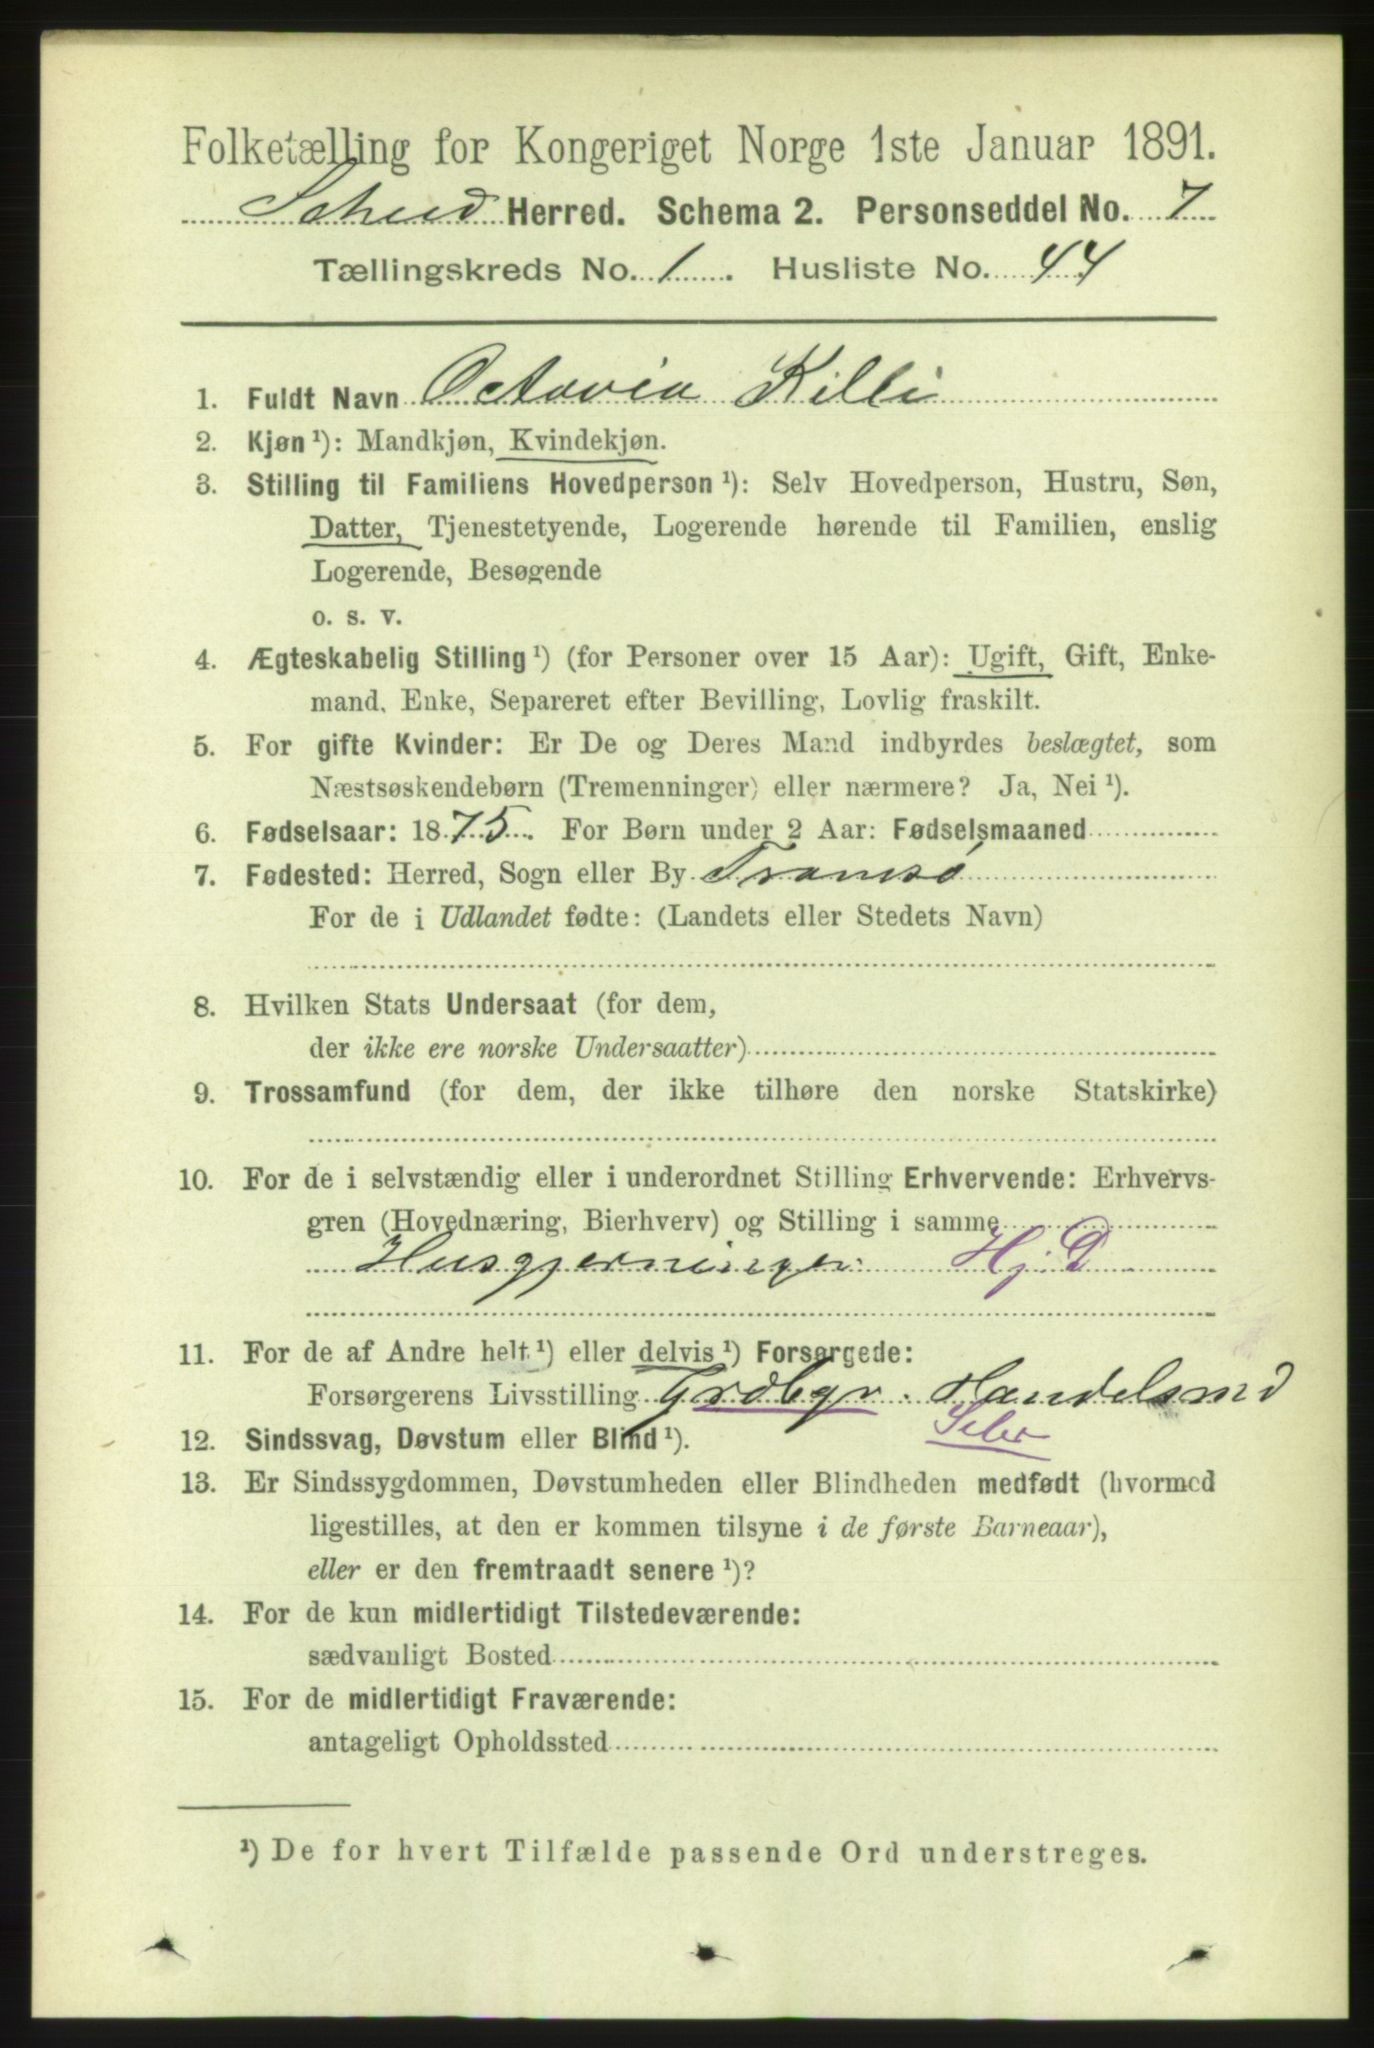 Folketælling for Kongeriget Norge 1ste Januar 1891.
Herred. Schema 2. Personseddel No. 7
Tællingskreds No. 1. Husliste No. 44
1. Fuldt Navn Octavia Killi
2. Kjøn ¹): Mandkjøn, Kvindekjøn.
3. Stilling til Familiens Hovedperson ¹): Selv Hovedperson, Hustru, Søn,
Datter, Tjenestetyende, Logerende hørende til Familien, enslig
Logerende, Besøgende
o. s. v.
4. Ægteskabelig Stilling ¹) (for Personer over 15 Aar): Ugift, Gift, Enke-
mand, Enke, Separeret efter Bevilling, Lovlig fraskilt.
5. For gifte Kvinder: Er De og Deres Mand indbyrdes beslægtet, som
Næstsøskendebørn (Tremenninger) eller nærmere? Ja, Nei ¹).
6. Fødselsaar: 1875. For Børn under 2 Aar: Fødselsmaaned
7. Fødested: Herred, Sogn eller By Tromsø
For de i Udlandet fødte: (Landets eller Stedets Navn)
8. Hvilken Stats Undersaat (for dem,
der ikke ere norske Undersaatter)
9. Trossamfund (for dem, der ikke tilhøre den norske Statskirke)
10. For de i selvstændig eller i underordnet Stilling Erhvervende: Erhvervs-
gren (Hovednæring, Bierhverv) og Stilling i samme
Husgjerninger Hj. D
11. For de af Andre helt ¹) eller delvis ¹) Forsørgede:
Forsørgerens Livsstilling Grdbgr. Handelsmd
12. Sindssvag, Døvstum eller Blind ¹).
13. Er Sindssygdommen, Døvstumheden eller Blindheden medfødt (hvormed
ligestilles, at den er kommen tilsyne i de første Barneaar),
eller er den fremtraadt senere ¹)?
14. For de kun midlertidigt Tilstedeværende:
sædvanligt Bosted
15. For de midlertidigt Fraværende:
antageligt Opholdssted
¹) De for hvert Tilfælde passende Ord understreges.